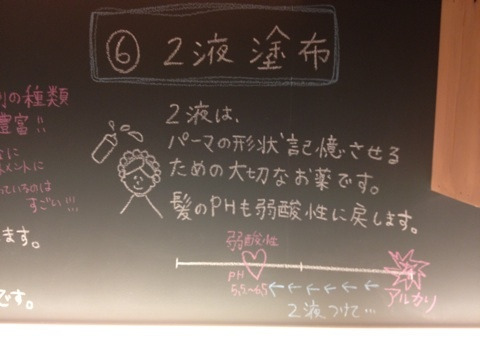 ⑥ 2液塗布
2液は、
パーマの形状記憶させる
ための大切なお薬です。
髪のPHも弱酸性に戻します。
の種類
豊富!!
に
ポイントに
っているのは
すごい!!!
ます。
です。
弱酸性
PH
5.5~6.5
アルカリ
2液つけて…